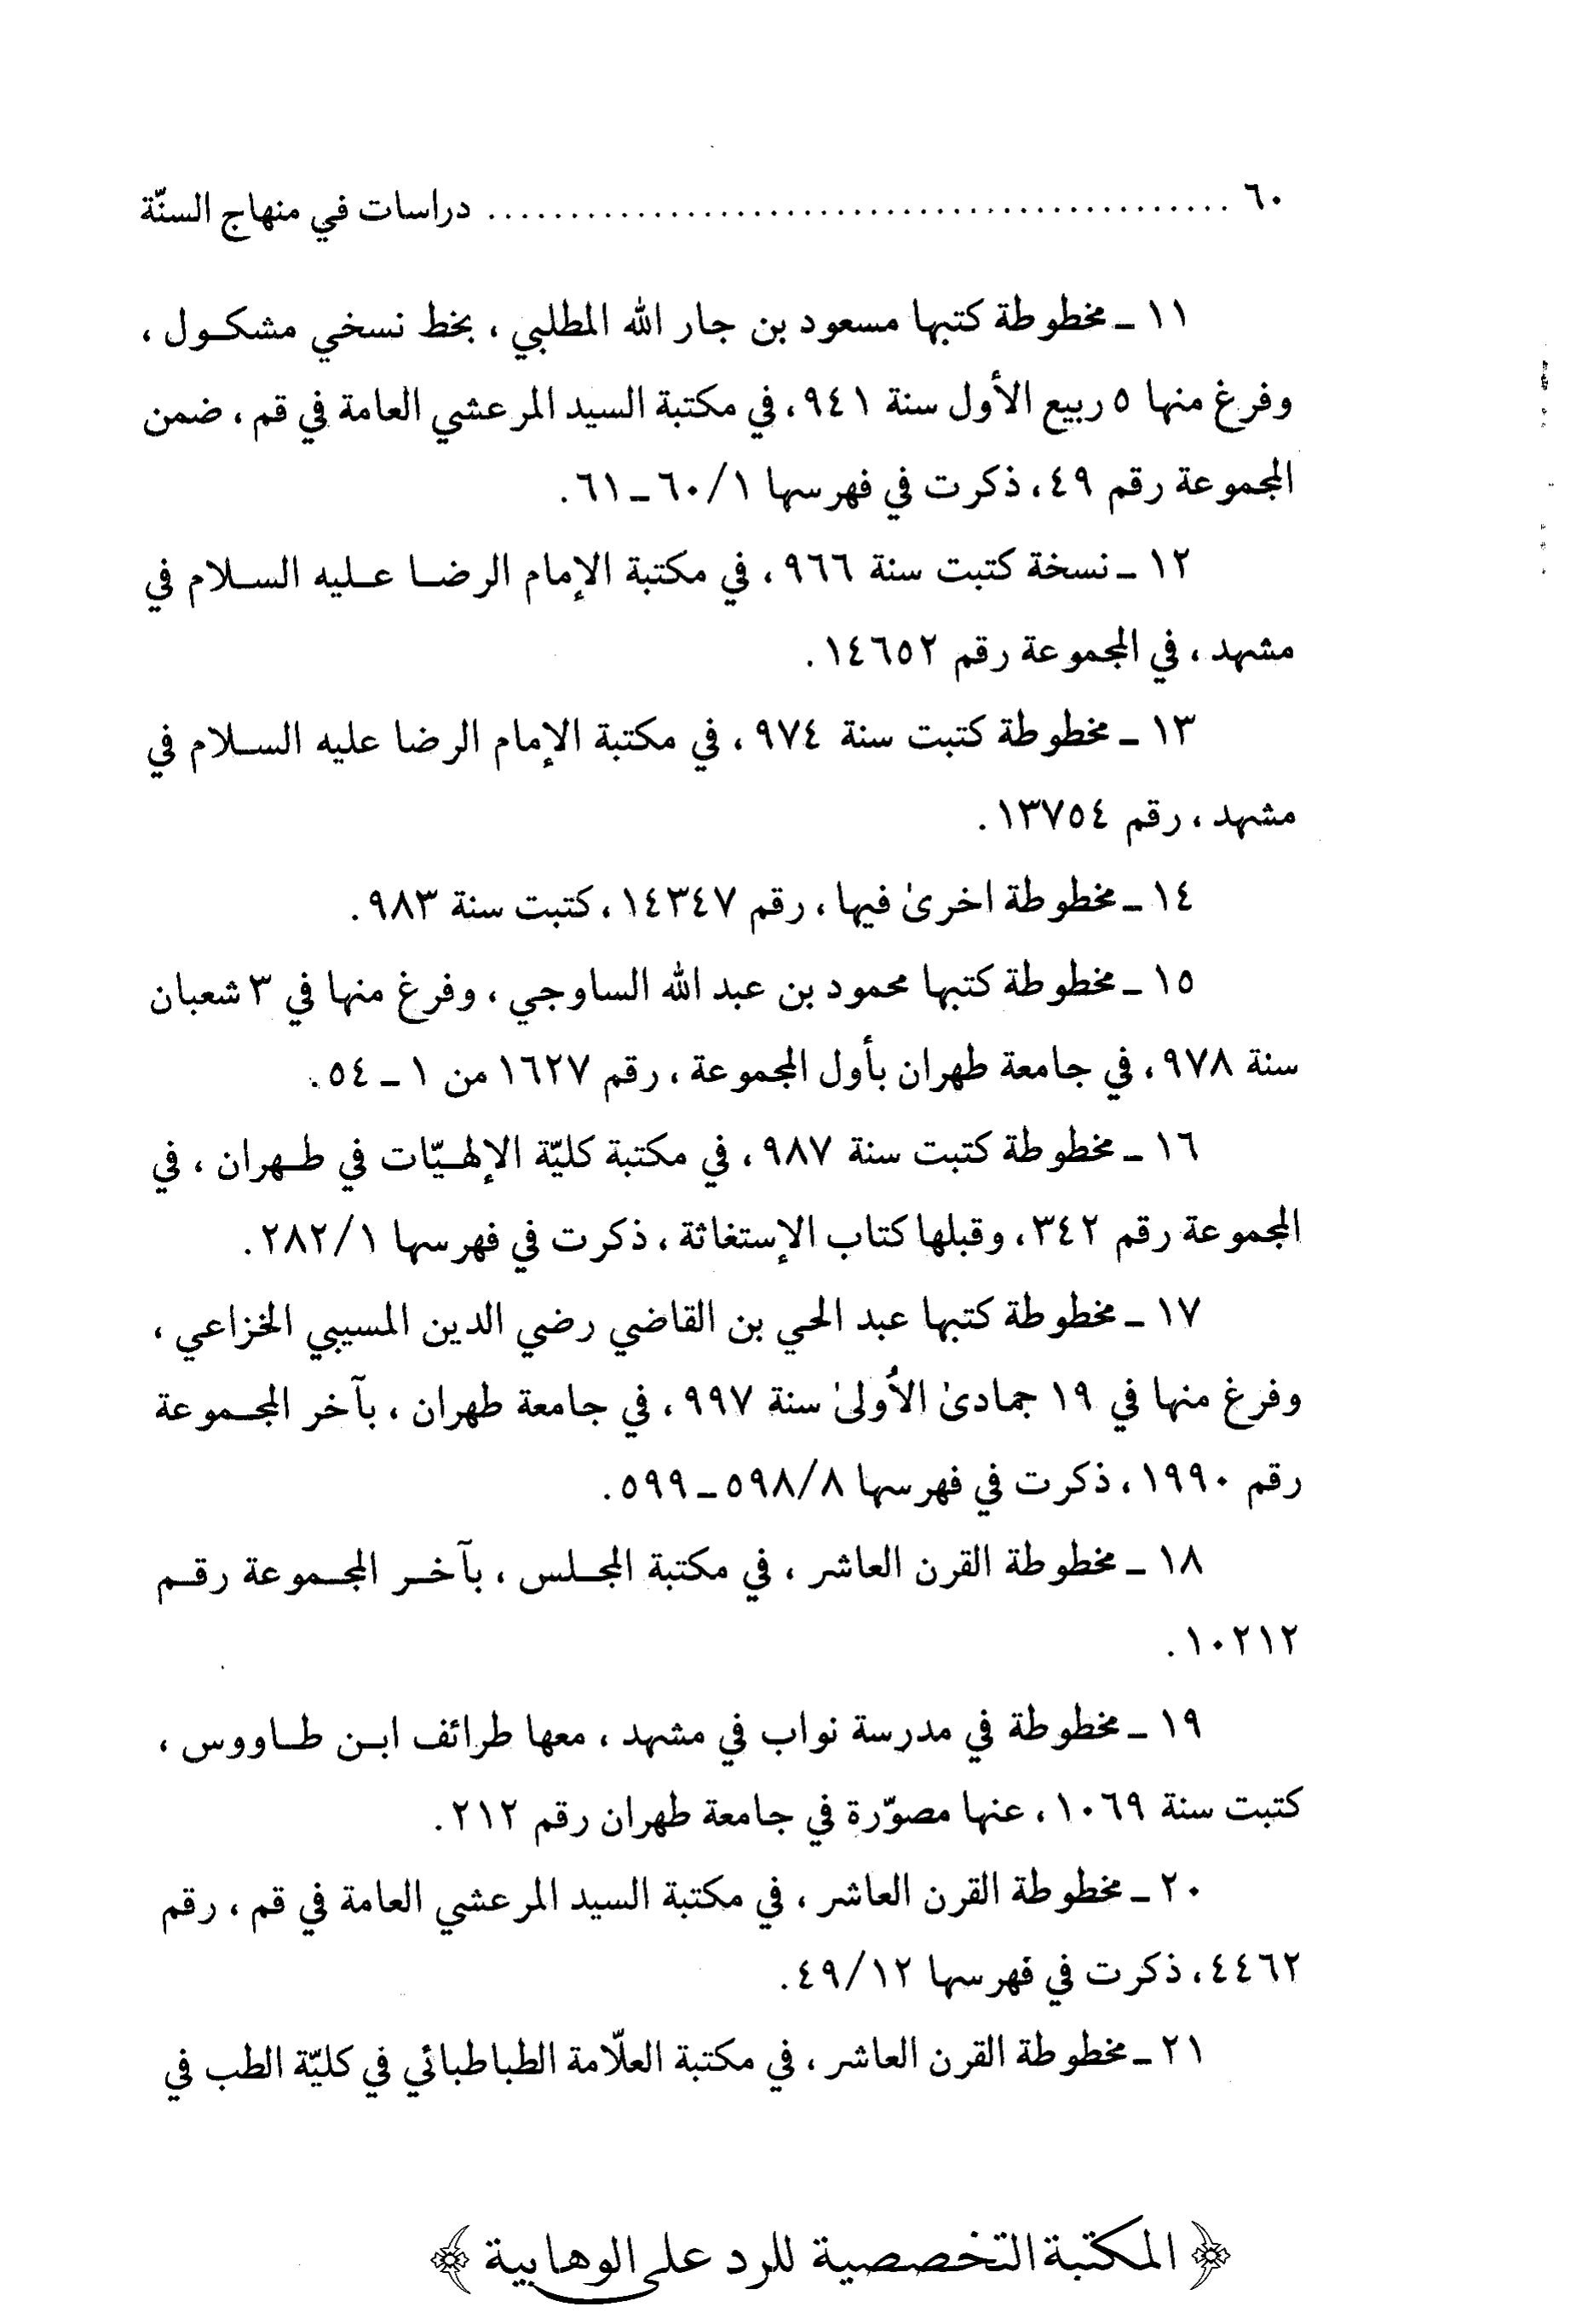 ٦٠ ............................................. دراسات في منهاج السنّة
١١ ـ مخطوطة كتبها مسعود بن جار الله المطلبي ، بخط نسخي مشكول ،
وفرغ منها ٥ ربيع الأول سنة ٩٤١ ، في مكتبة السيد المرعشي العامة في قم ، ضمن
المجموعة رقم ٤٩ ، ذكرت في فهرسها ١/ ٦٠ ـ ٦١.
١٢ ـ نسخة كتبت سنة ٩٦٦ ، في مكتبة الإمام الرضا عليه السلام في
مشهد ، في المجموعة رقم ١٤٦٥٢.
١٣ ـ مخطوطة كتبت سنة ٩٧٤ ، في مكتبة الإمام الرضا عليه السلام في
مشهد ، رقم ١٣٧٥٤.
١٤ ـ مخطوطة اخرىٰ فيها ، رقم ١٤٣٤٧ ، كتبت سنة ٩٨٣.
١٥ ـ مخطوطة كتبها محمود بن عبد الله الساوجي ، وفرغ منها في ٣ شعبان
سنة ٩٧٨ ، في جامعة طهران بأول المجموعة ، رقم ١٦٢٧ من ١ ـ ٥٤.
١٦ ـ مخطوطة كتبت سنة ٩٨٧ ، في مكتبة كليّة الإلهيّات في طهران ، في
المجموعة رقم ٣٤٢ ، وقبلها كتاب الإستغاثة ، ذكرت في فهرسها ١/ ٢٨٢.
١٧ ـ مخطوطة كتبها عبد الحي بن القاضي رضي الدين المسيبي الخزاعي ،
وفرغ منها في ١٩ جمادىٰ الأُولىٰ سنة ٩٩٧ ، في جامعة طهران ، بآخر المجموعة
رقم ١٩٩٠ ، ذكرت في فهرسها ٨/ ٥٩٨ ـ ٥٩٩.
١٨ ـ مخطوطة القرن العاشر ، في مكتبة المجلس ، بآخر المجموعة رقم
١٠٢١٢.
١٩ ـ مخطوطة في مدرسة نواب في مشهد ، معها طرائف ابن طاووس ،
كتبت سنة ١٠٦٩ ، عنها مصوّرة في جامعة طهران رقم ٢١٢.
٢٠ ـ مخطوطة القرن العاشر ، في مكتبة السيد المرعشي العامة في قم ، رقم
٤٤٦٢ ، ذكرت في فهرسها ١٢/ ٤٩.
٢١ ـ مخطوطة القرن العاشر ، في مكتبة العلّامة الطباطبائي في كليّة الطب في
﴿ المكتبة التخصصية للرد على الوهابية ﴾